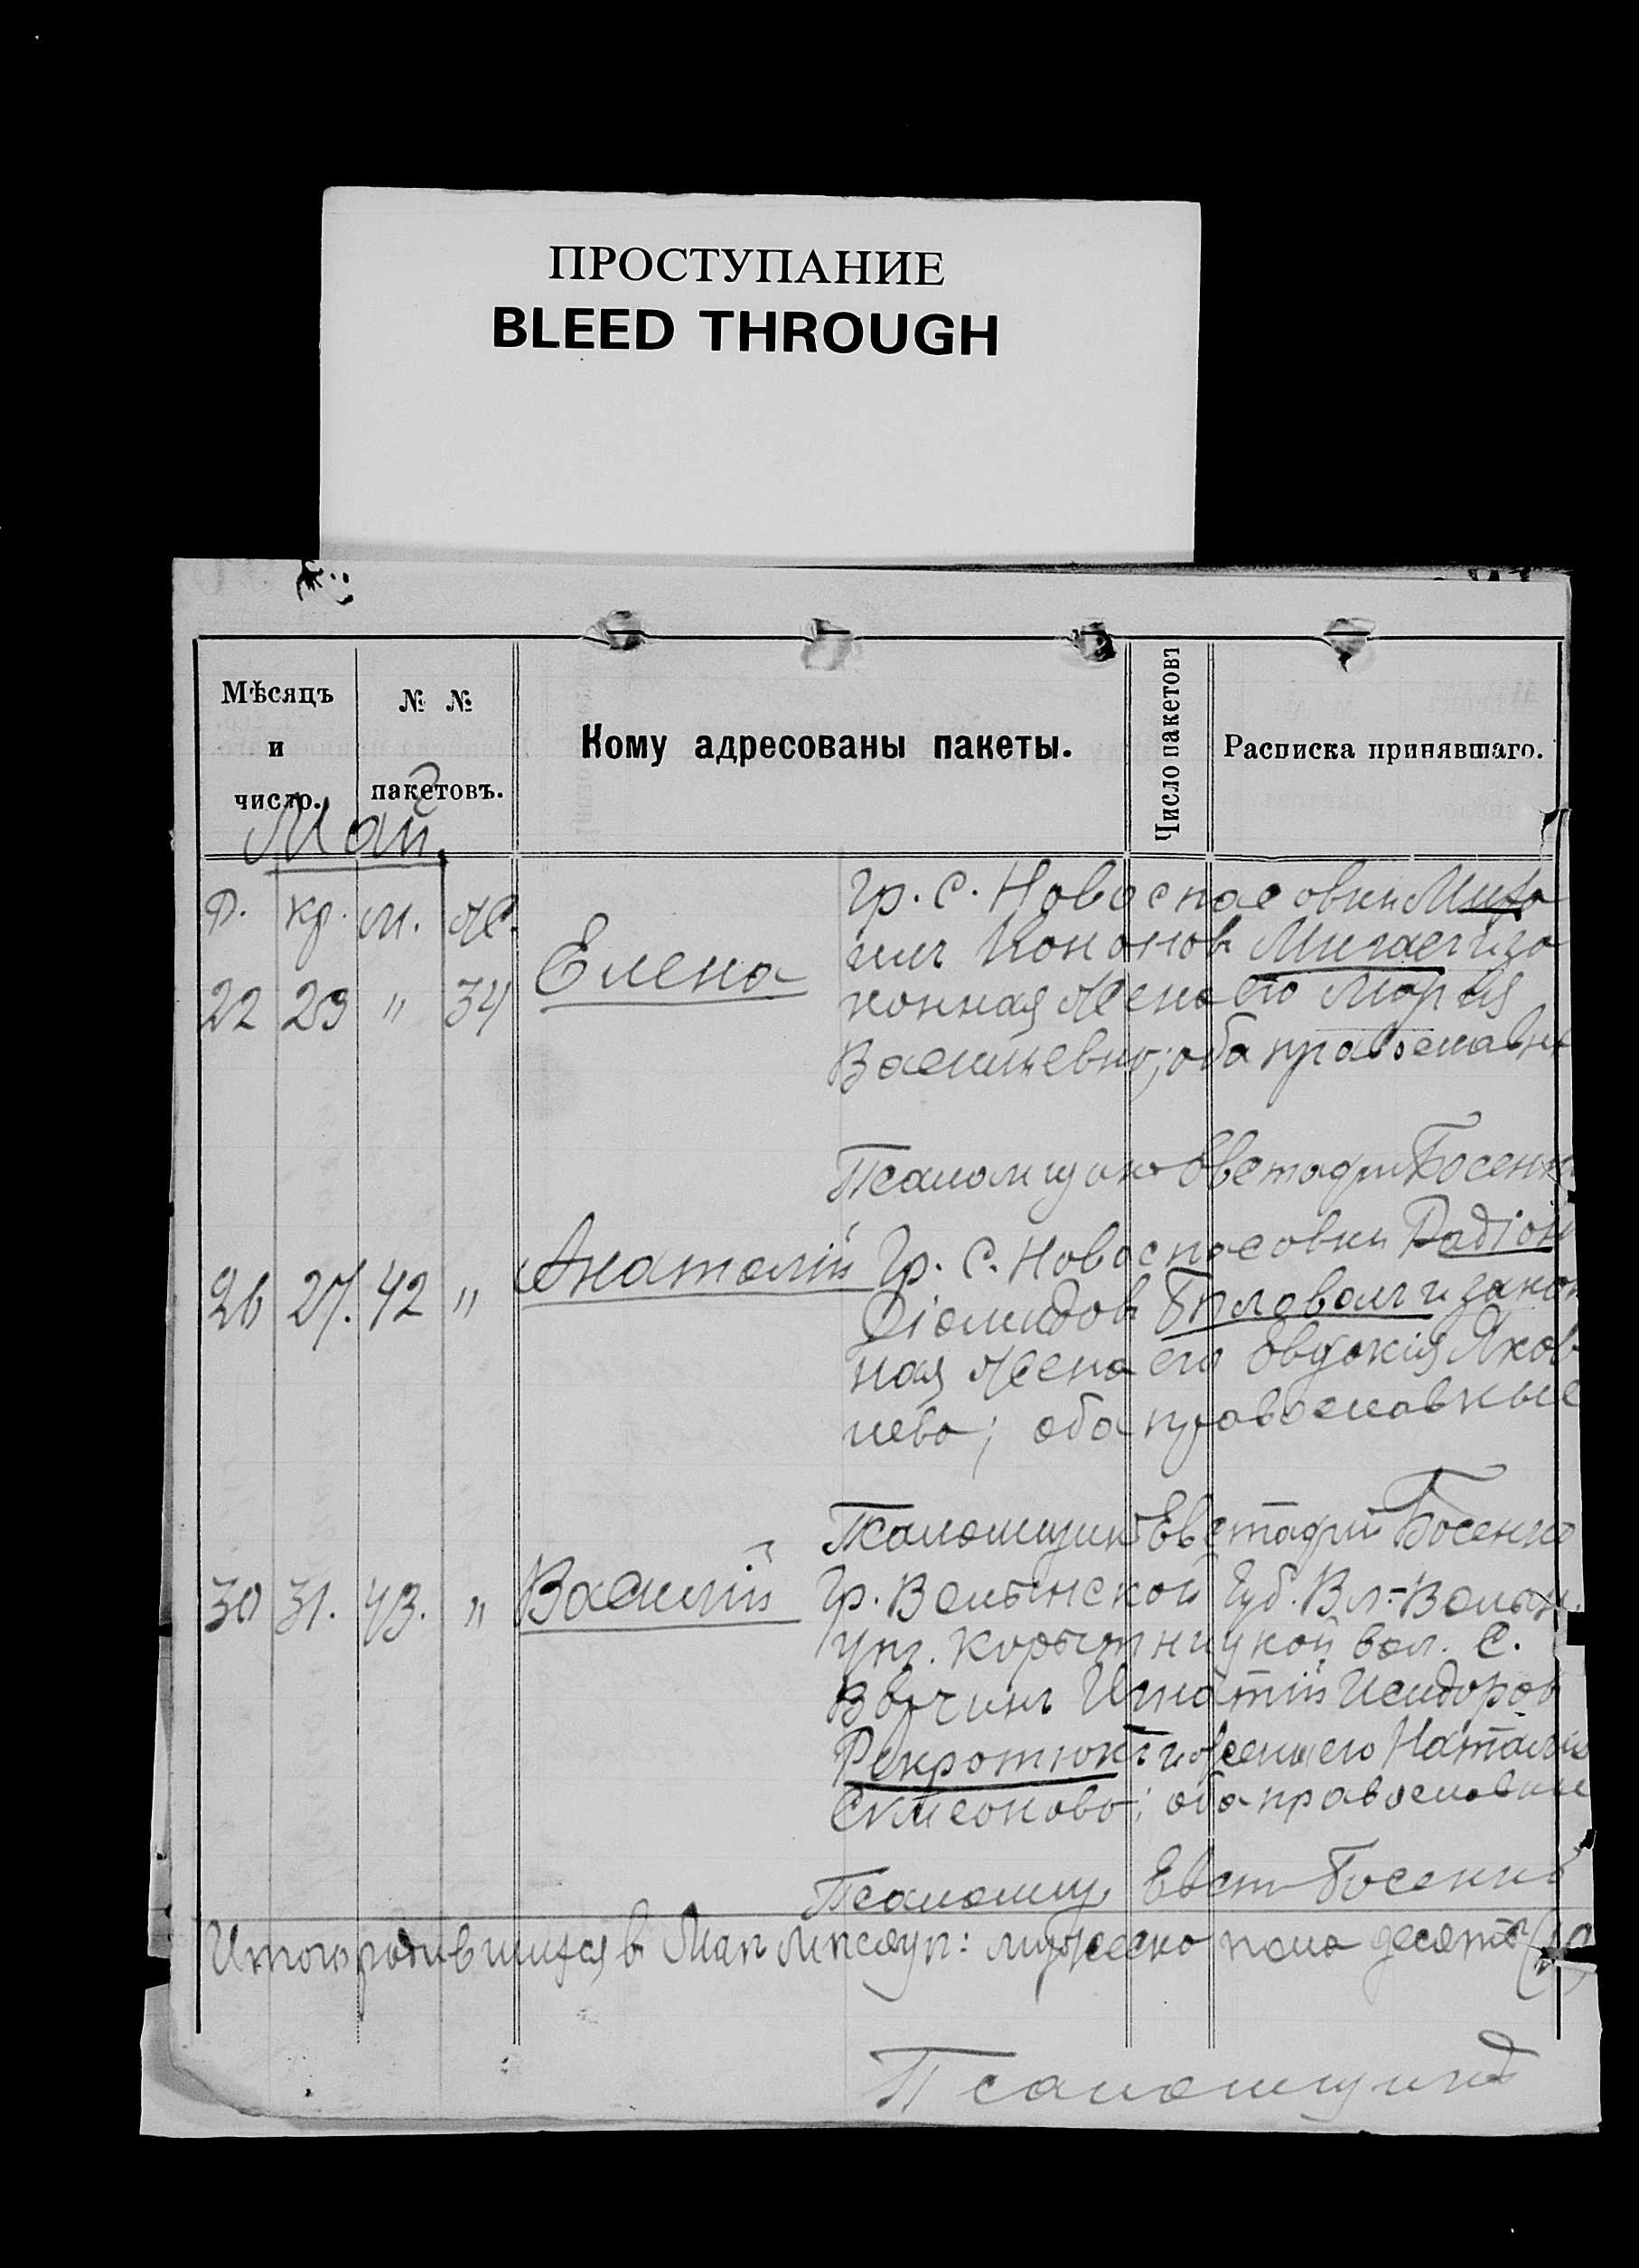 ПРОСТУПАНИЕ
BLEED THROUGH
Мѣсяцъ и число.
№ № пакетовъ.
Кому адресованы пакеты.
Число пакетовъ
Расписка принявшаго.
Май.
Р. кр. м. ж.
22 23 " 34 Елена
Гр. с. Новоспасовки
Кононов и за
конная жена его Марія
Васильевна; оба православн
Псаломщик Евстафий Босенк
26 27. 42 " Анатолій Гр. с. Новоспасовки Радіон
Діомидов и закон
ная жена его Евдокія Яков
лева; оба православные
Псаломщик Евстафий Босенко
30 31. 43. " Василій Гр. Волынской Губ. Вл.-Волын.
уѣз. Корытницкой вол. с.
Игнатій Исидоров
и жена его Наталія
Симеонова; оба православные
Псаломщ Евст Босенко
Итого родившихся в Маѣ мѣсяцѣ: мужеско пола десять (10)
Псаломщик